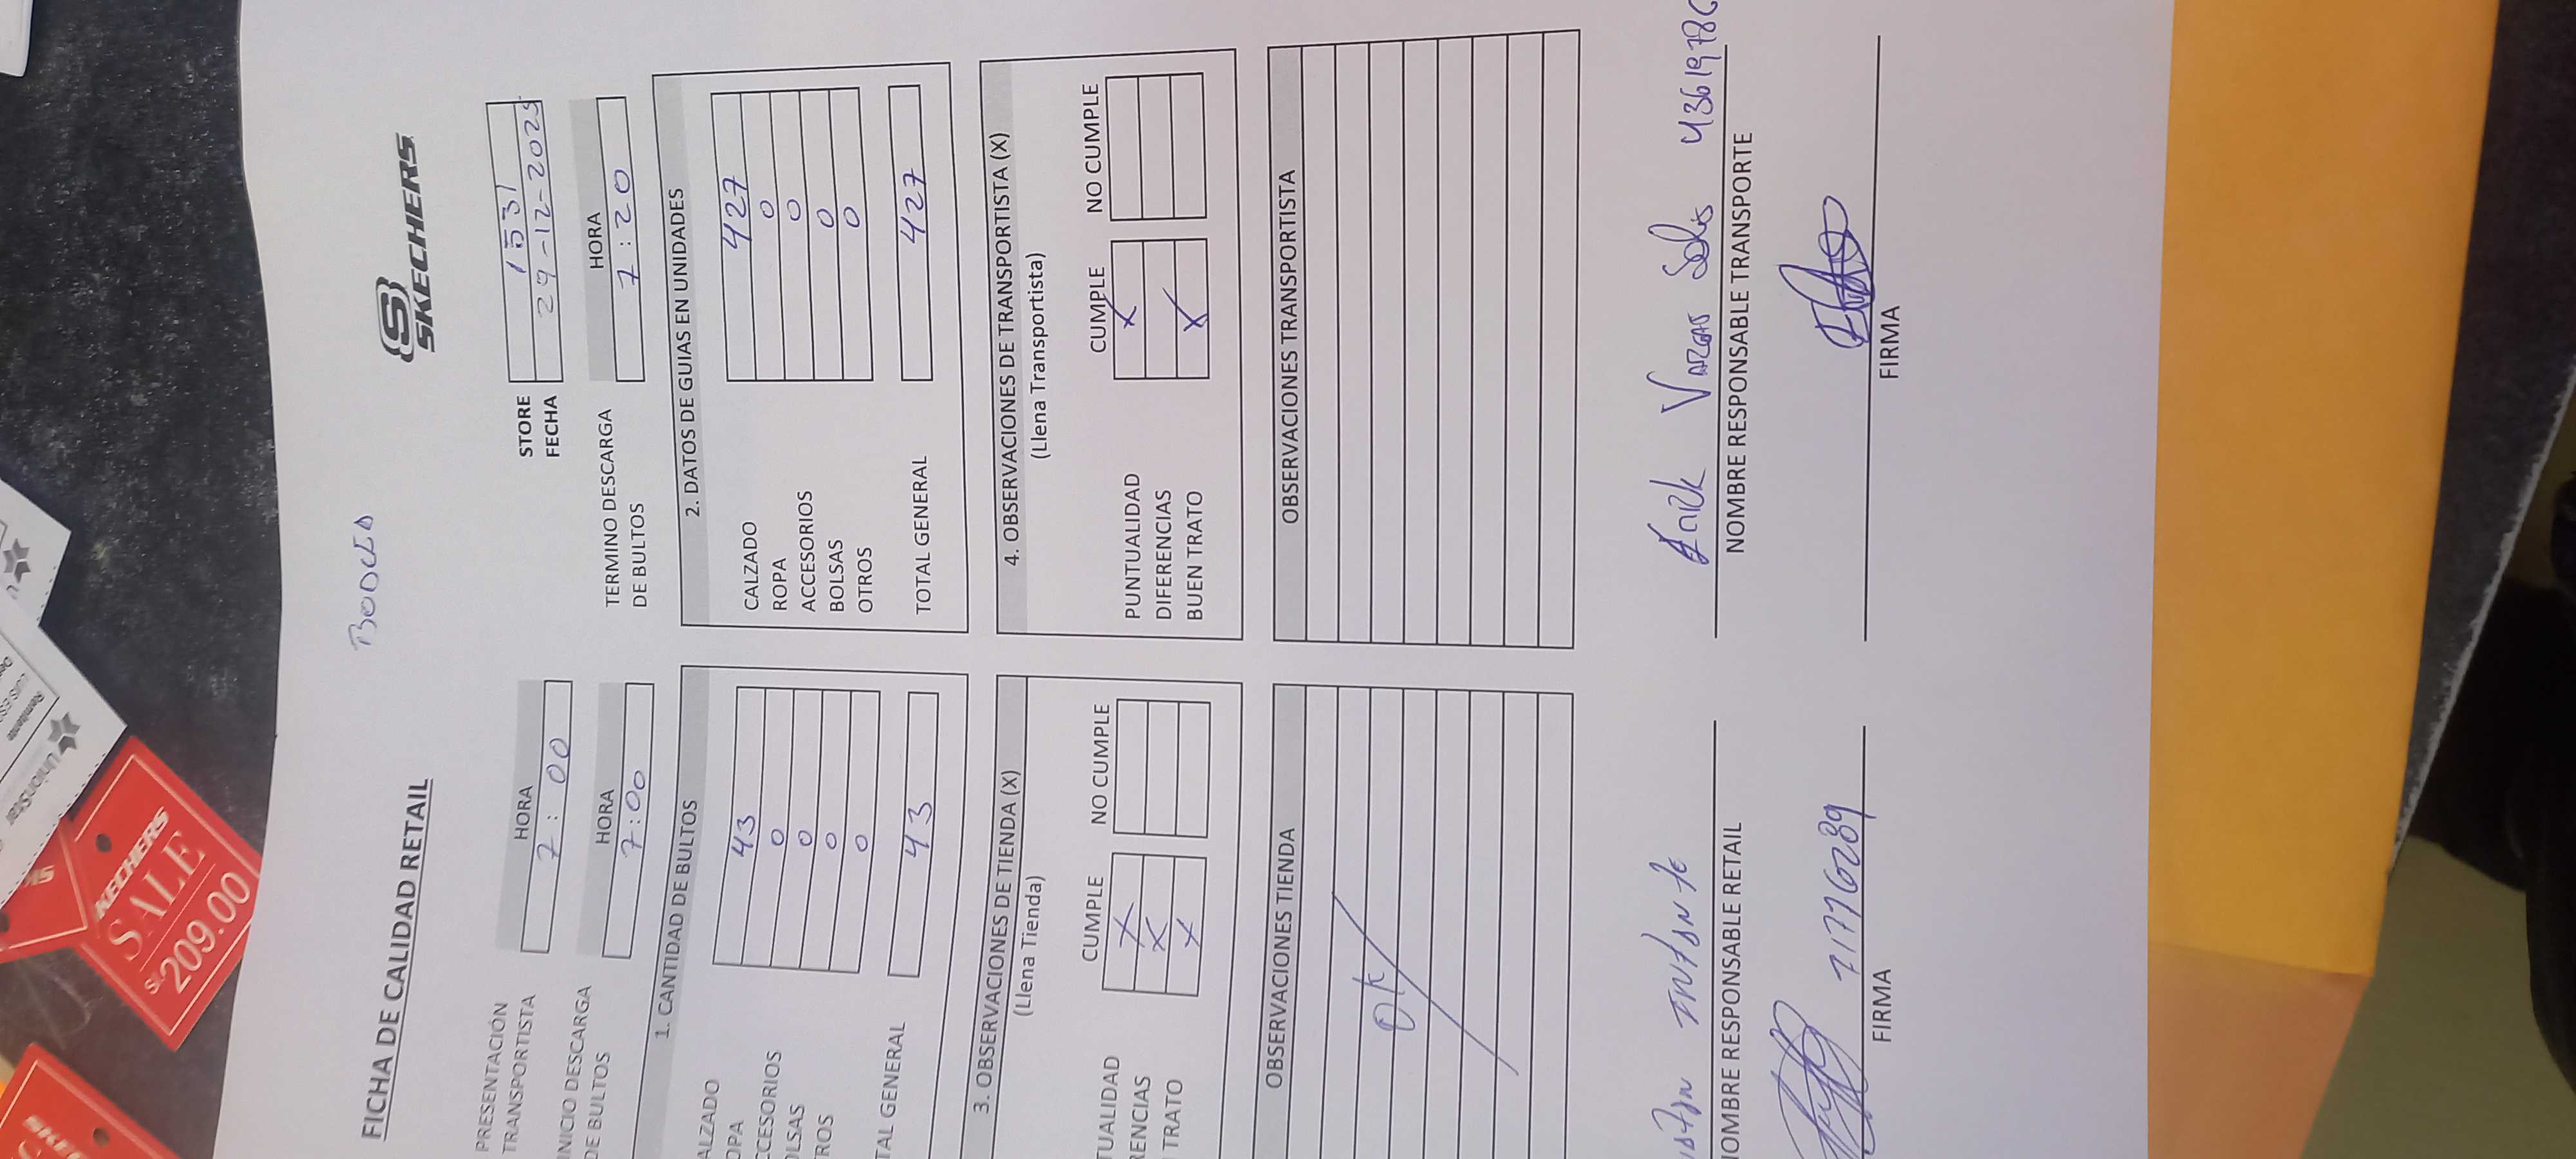 BOULD
FICHA DE CALIDAD RETAIL
SKECHERS
PRESENTACIÓN TRANSPORTISTA
HORA
7:00
STORE 1531
FECHA 29-12-2025
INICIO DESCARGA DE BULTOS
HORA
7:00
TERMINO DESCARGA DE BULTOS
HORA
7:20
1. CANTIDAD DE BULTOS
ALZADO 43
OPA 0
CCESORIOS 0
OLSAS 0
ROS 0
TAL GENERAL 43
2. DATOS DE GUIAS EN UNIDADES
CALZADO 427
ROPA 0
ACCESORIOS 0
BOLSAS 0
OTROS 0
TOTAL GENERAL 427
3. OBSERVACIONES DE TIENDA (X)
(Llena Tienda)
CUMPLE NO CUMPLE
TUALIDAD X
RENCIAS X
TRATO X
4. OBSERVACIONES DE TRANSPORTISTA (X)
(Llena Transportista)
CUMPLE NO CUMPLE
PUNTUALIDAD X
DIFERENCIAS
BUEN TRATO X
OBSERVACIONES TIENDA
OK
OBSERVACIONES TRANSPORTISTA
Infante
OMBRE RESPONSABLE RETAIL
Vargas Solis 4361978
NOMBRE RESPONSABLE TRANSPORTE
71776289
FIRMA
FIRMA
KECHERS
SALE
S/.209.00
UnionStar
Remitente